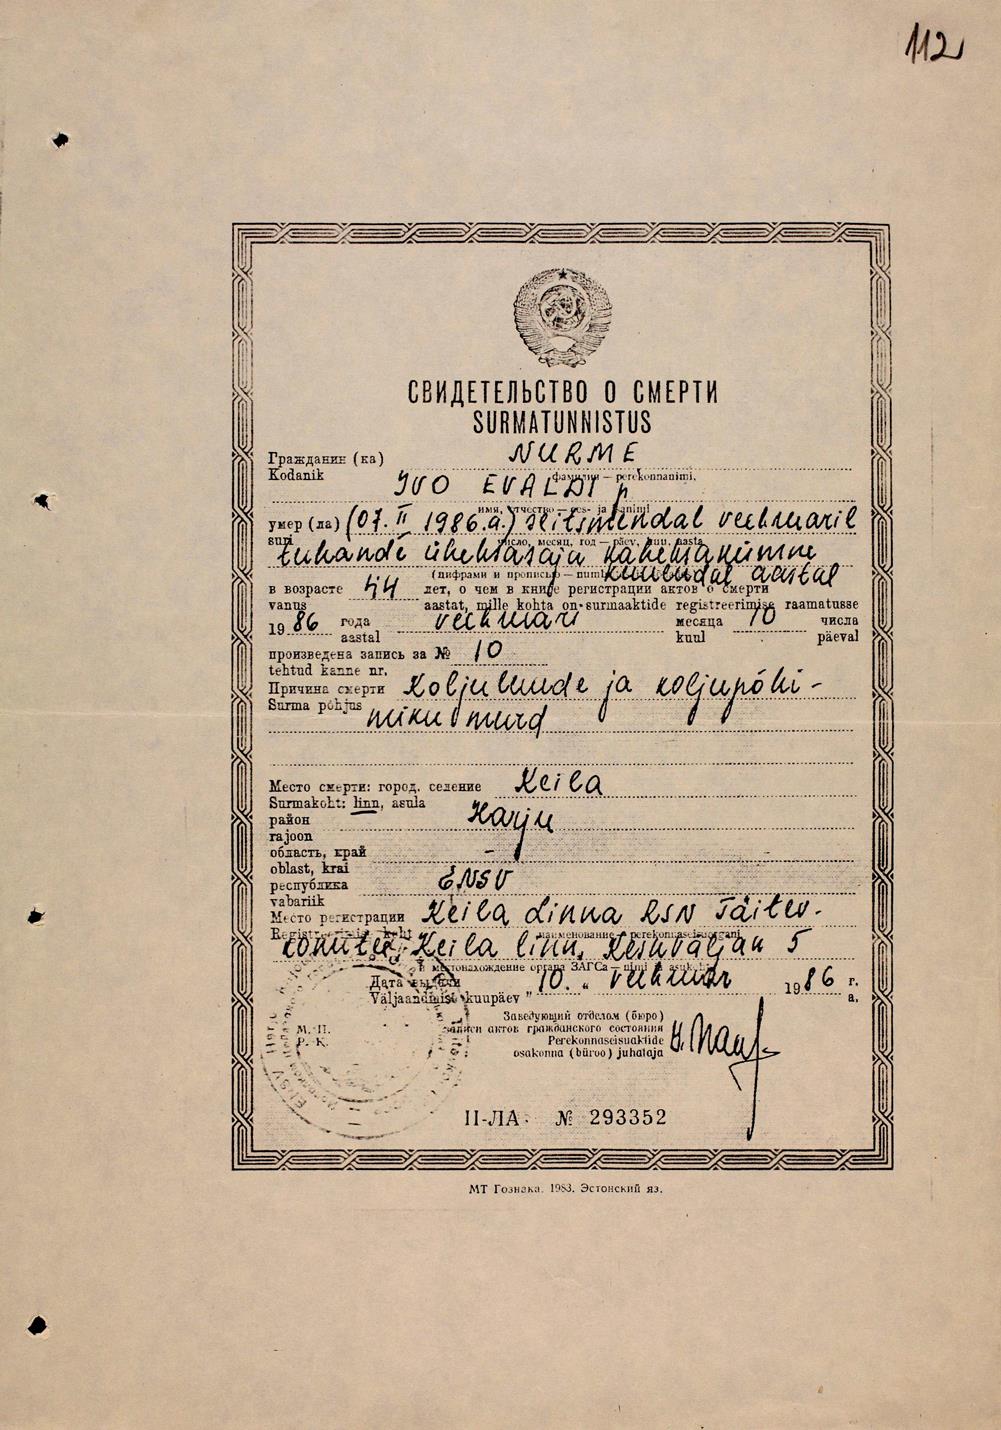 112
СВИДЕТЕЛЬСТВО О СМЕРТИ
SURMATUNNISTUS
Гражданин (ка) NURME
Kodanik фамилия — perekonnanimi,
IVO EVALDI p
имя, отчество — ees- ja
умер (ла) (07. II 1986.a.) seitsmendal veebruaril
suri число, месяц, год — päev, kuu, aasta
tuhande üheksasaja kaheksakümne
(цифрами и прописью — kuuendal aastal
в возрасте 44 лет, о чем в книге регистрации актов о смерти
vanus aastat, mille kohta on surmaaktide registreerimise raamatusse
19 86 года veebruari месяца 10 числа
aastal kuul päeval
произведена запись за № 10
tehtud kanne nr.
Причина смерти Koljuluude ja koljupõhi-
Surma põhjus miku murd
Место смерти: город, селение Keila
Surmakoht: linn, asula
район Harju
rajoon
область, край -
oblast, krai
республика ENSV
vabariik
Место регистрации Keila Linna RSN Täitev-
Registreerimise koht наименование — perekonnaseisuorgani
komitee Keila linn, Keskväljak 5
и местонахождение органа ЗАГСа — nimi ja asukoht
Дата выдачи
Väljaandmise kuupäev " 10. " veebruar 19 86 г.
a.
Заведующий отделом (бюро)
М. П. записи актов гражданского состояния
P. K. Perekonnaseisuaktide
osakonna (büroo) juhataja
II-ЛА № 293352
МТ Гознака. 1983. Эстонский яз.